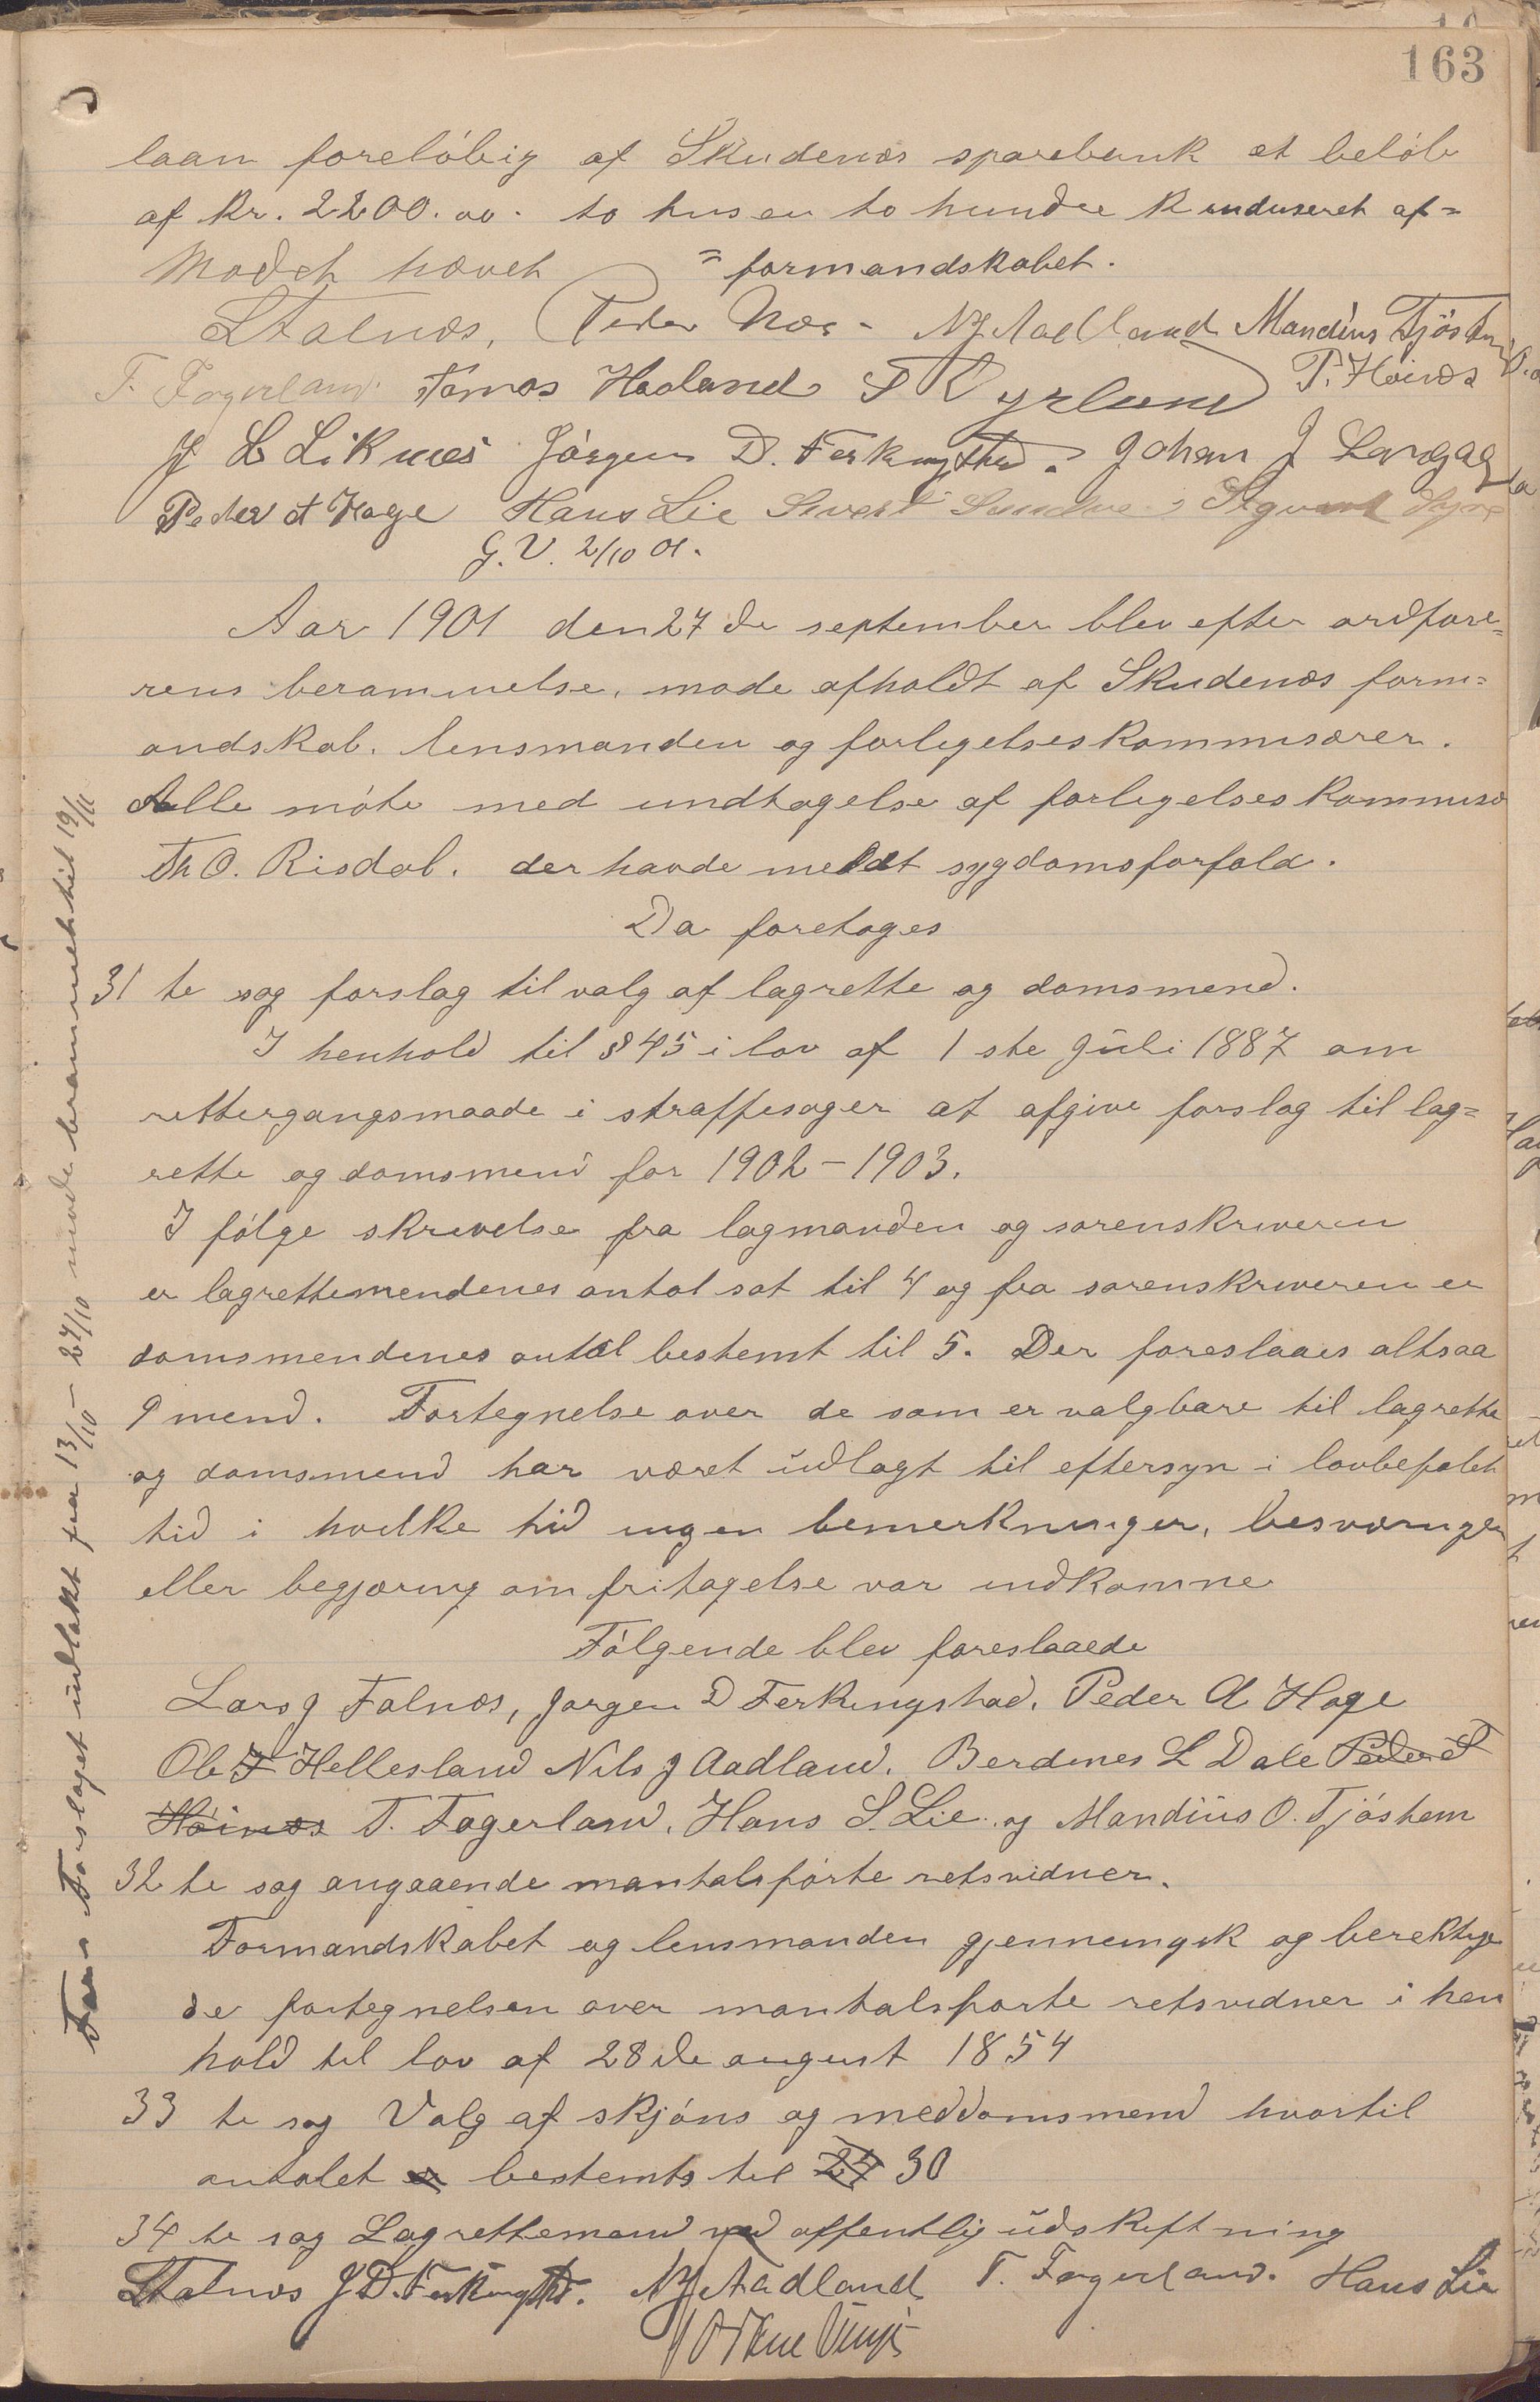 163
laan foreløbig af Skudenæs sparebank et beløb
af kr. 2200.00. to tusen to hundre k induseret af=
Mødet hævet =formandskabet.
LFalnæs, Peder Næs - NJAadland Mandius Tjøstem
T. Fagerland Tómas Havland T Kyrlund T. Høinæs
J L Liknæs Jørgen D. Ferkingstad. Johan J Langaa
Peder A Hage Hans Lie Sivert Sigvart
G. V. 2/10 01.
Aar 1901 den 27de september blev efter ordføre=
rens berammelse, møde afholdt af Skudenæs form=
andskab. lensmanden og forligelseskommisærer.
Alle møte med undtagelse af forligelseskommisæ
Th O. Risdal. der havde meldt sygdomsforfald.
Da foretoges
31 te sag forslag til valg af lagrette og domsmend.
I henhold til § 45 i lov af 1ste Juli 1887 om
rettergangsmaade i straffesager at afgive forslag til lag=
rette og domsmend for 1902-1903.
I følge skrivelse fra lagmanden og sorenskriveren
er lagrettemendenes antal sat til 4 og fra sorenskriveren er
domsmendenes antal bestemt til 5. Der foreslaaes altsaa
9 mend. Fortegnelse over de som er valgbare til lagrette
og domsmend har været udlagt til eftersyn i lovbefalet
tid i hvilke tid ingen bemerkninger, besværinger
eller begjæring om fritagelse var indkomne
Følgende blev foreslaaede
Lars J Falnæs, Jørgen D Ferkingstad, Peder A Hage
Ole F Hellesland Nils J Aadland. Berdines L Dale Peder T
Høinæs T. Fagerland, Hans S. Lie. og Mandius O. Tjøstem
32 te sag angaaende mantalsførte retsvidner.
Formandskabet og lensmanden gjennemgik og berektige
de fortegnelsen over mantalsførte retsvidner i hen
hold til lov af 28de august 1854
33 te sag Valg af skjøns og meddomsmend hvortil
antalet er bestemts til 24 30
34 te sag Lagrettemænd ved offentlig udskiftning
LFalnæs J D. Ferkingstd. NJAadland T. Fagerland. Hans Lie
Forslaget udlakt fra 13/10 - 27/10 møde berammet til 19/11